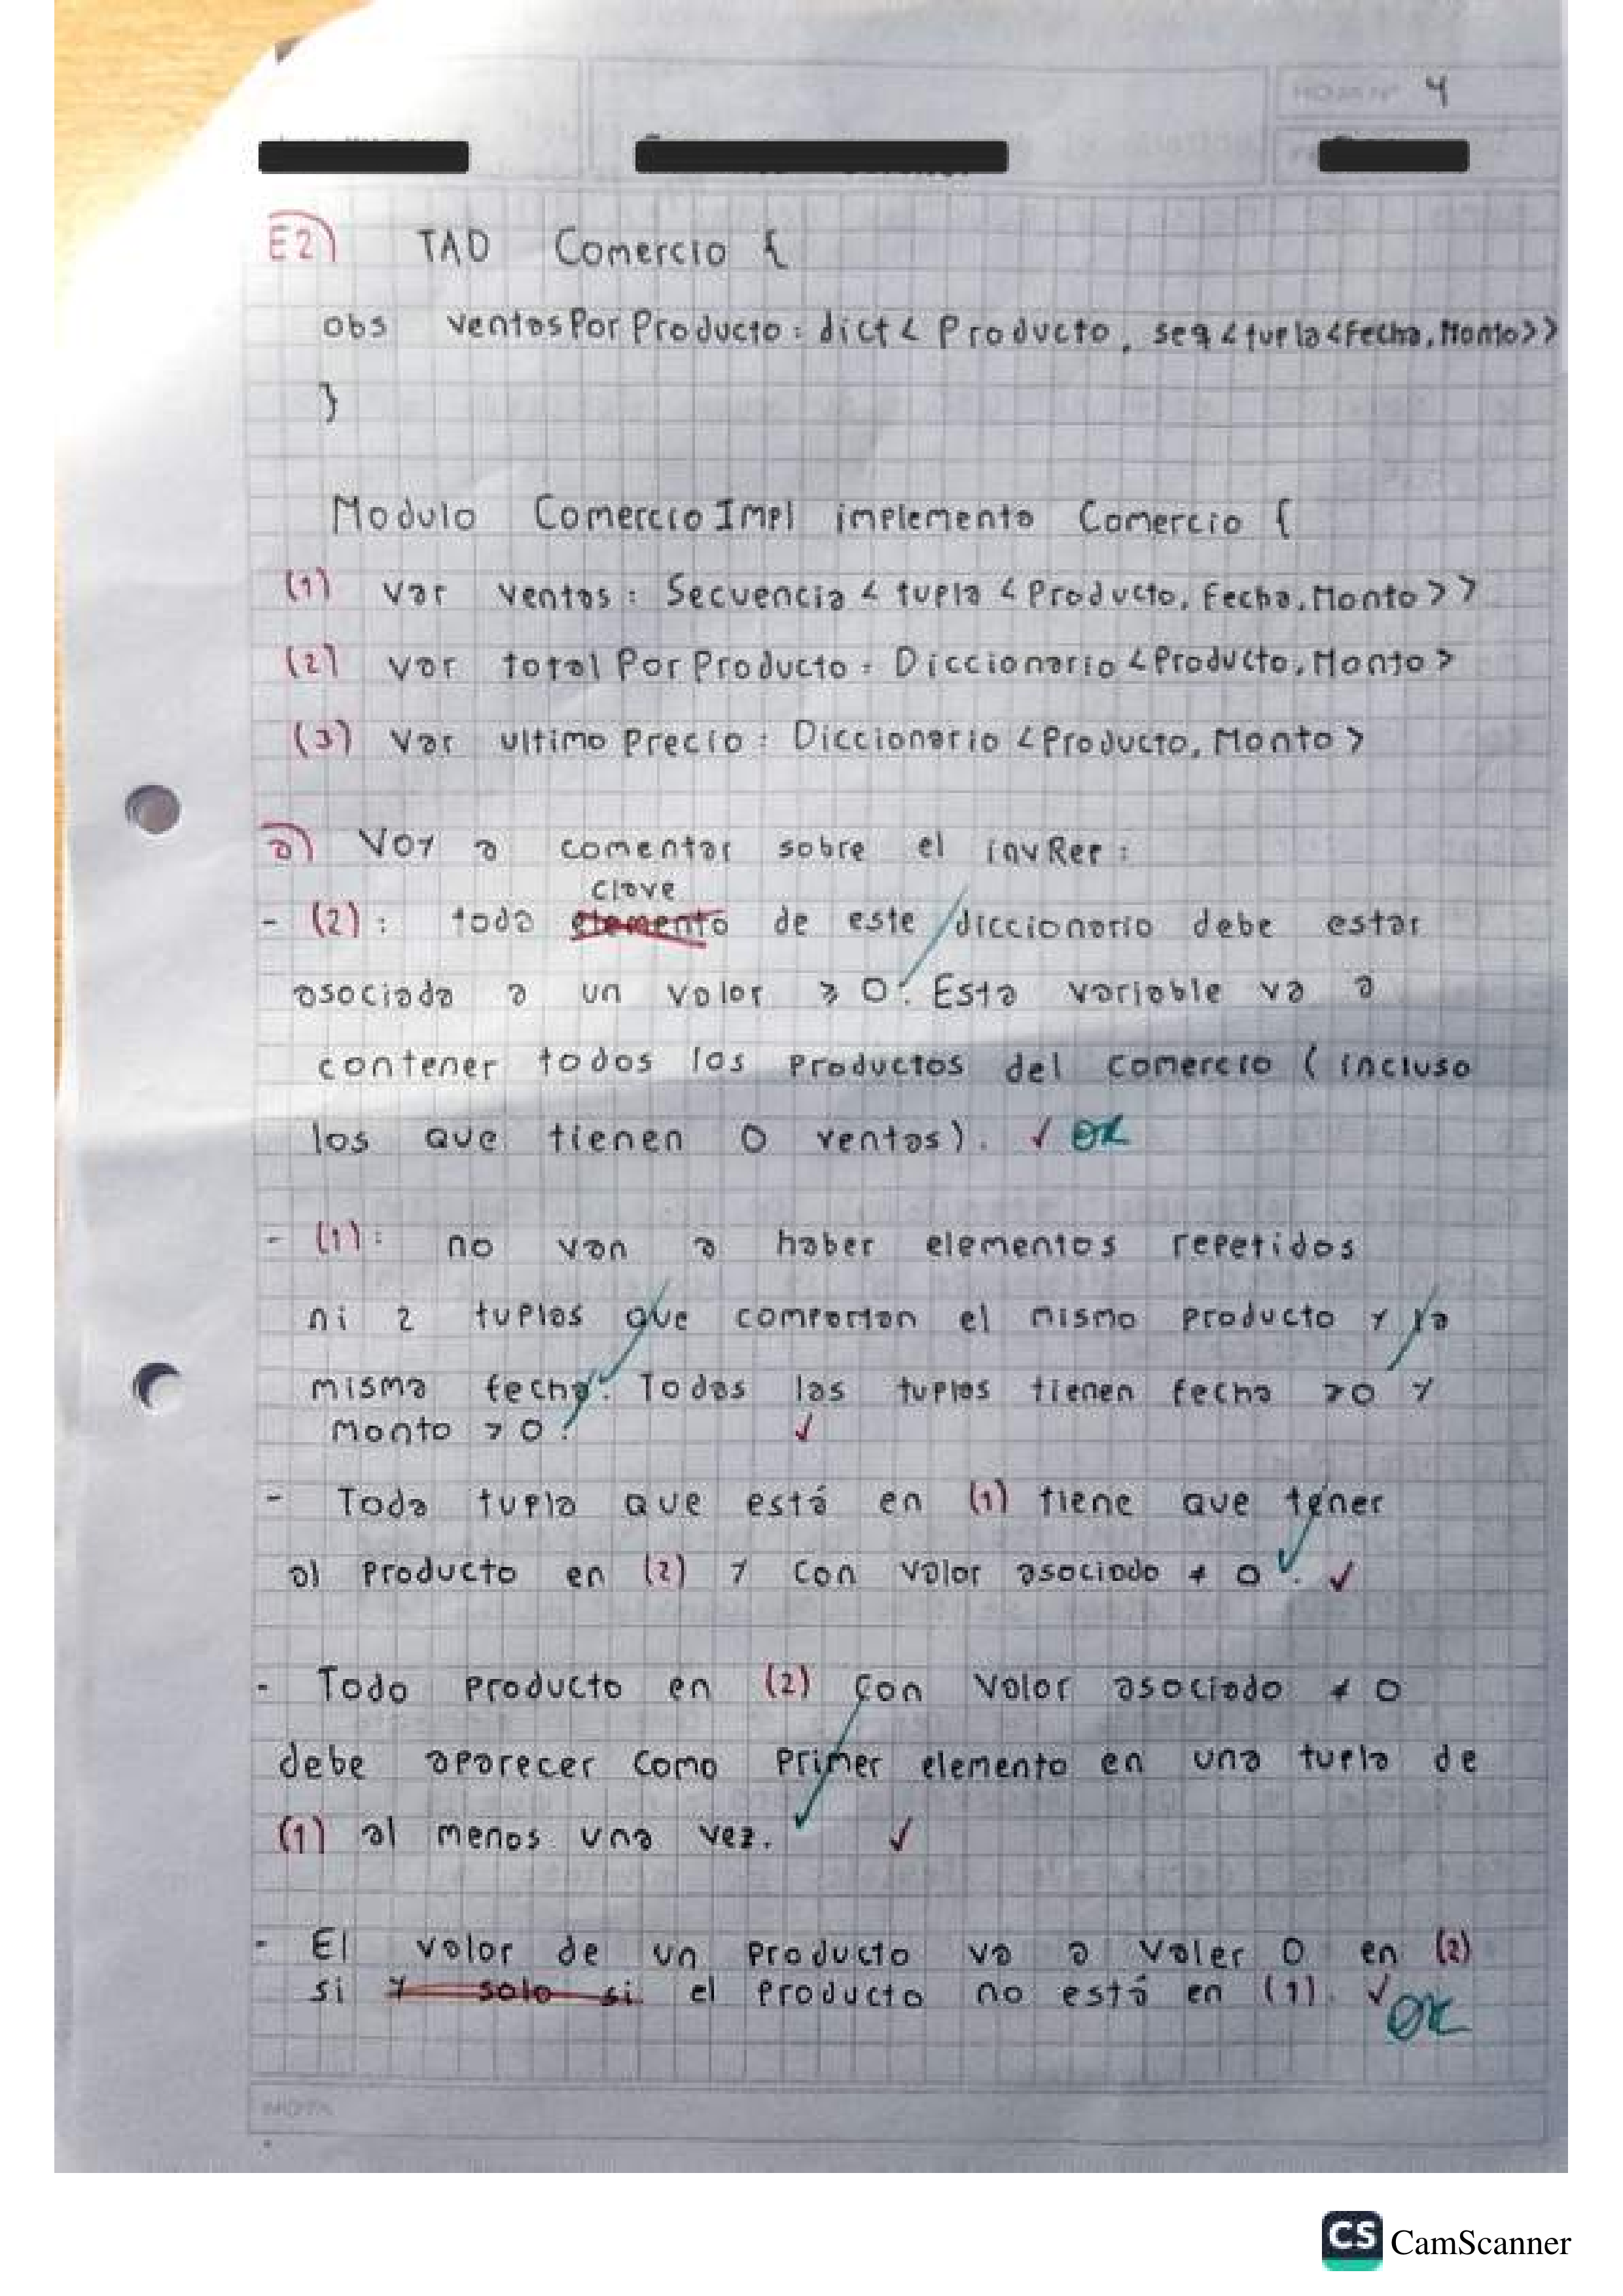 HOJA Nº 4
E2) TAD Comercio {
obs ventasPorProducto: dict < Producto, seq < tupla <Fecha, Monto>>
}
Modulo ComercioImpl implementa Comercio {
(1) var ventas: Secuencia < tupla < Producto, Fecha, Monto > >
(2) var totalPorProducto: Diccionario < Producto, Monto >
(3) Var ultimoPrecio: Diccionario < Producto, Monto >
a) Voy a comentar sobre el invRep:
clave
- (2): toda elemento de este diccionario debe estar
asociada a un valor ≥ 0. Esta variable va a
contener todos los productos del comercio (incluso
los que tienen 0 ventas). ✓ OK
- (1): no van a haber elementos repetidos
ni 2 tuplas que compartan el mismo producto y la
misma fecha. Todas las tuplas tienen fecha >0 y
Monto > 0. ✓
- Toda tupla que está en (1) tiene que tener
al producto en (2) y con valor asociado ≠ 0. ✓
- Todo producto en (2) con valor asociado ≠ 0
debe aparecer como primer elemento en una tupla de
(1) al menos una vez. ✓
- El valor de un producto va a valer 0 en (2)
si y solo si el producto no está en (1). ✓ OK
NOTA
CS CamScanner